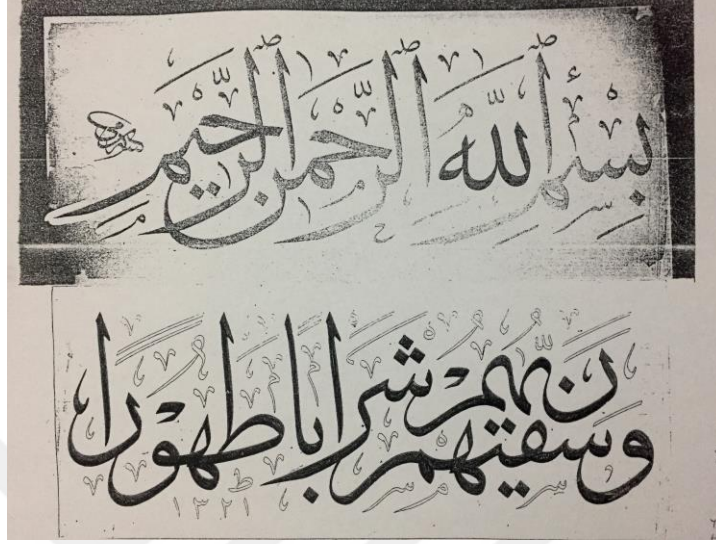 بِسْمِ اللَّهِ الرَّحْمنِ الرَّحِيمِ
وَسَقيهُمْ رَبُّهُمْ شَرَابًا طَهُورًا
١٣٢١